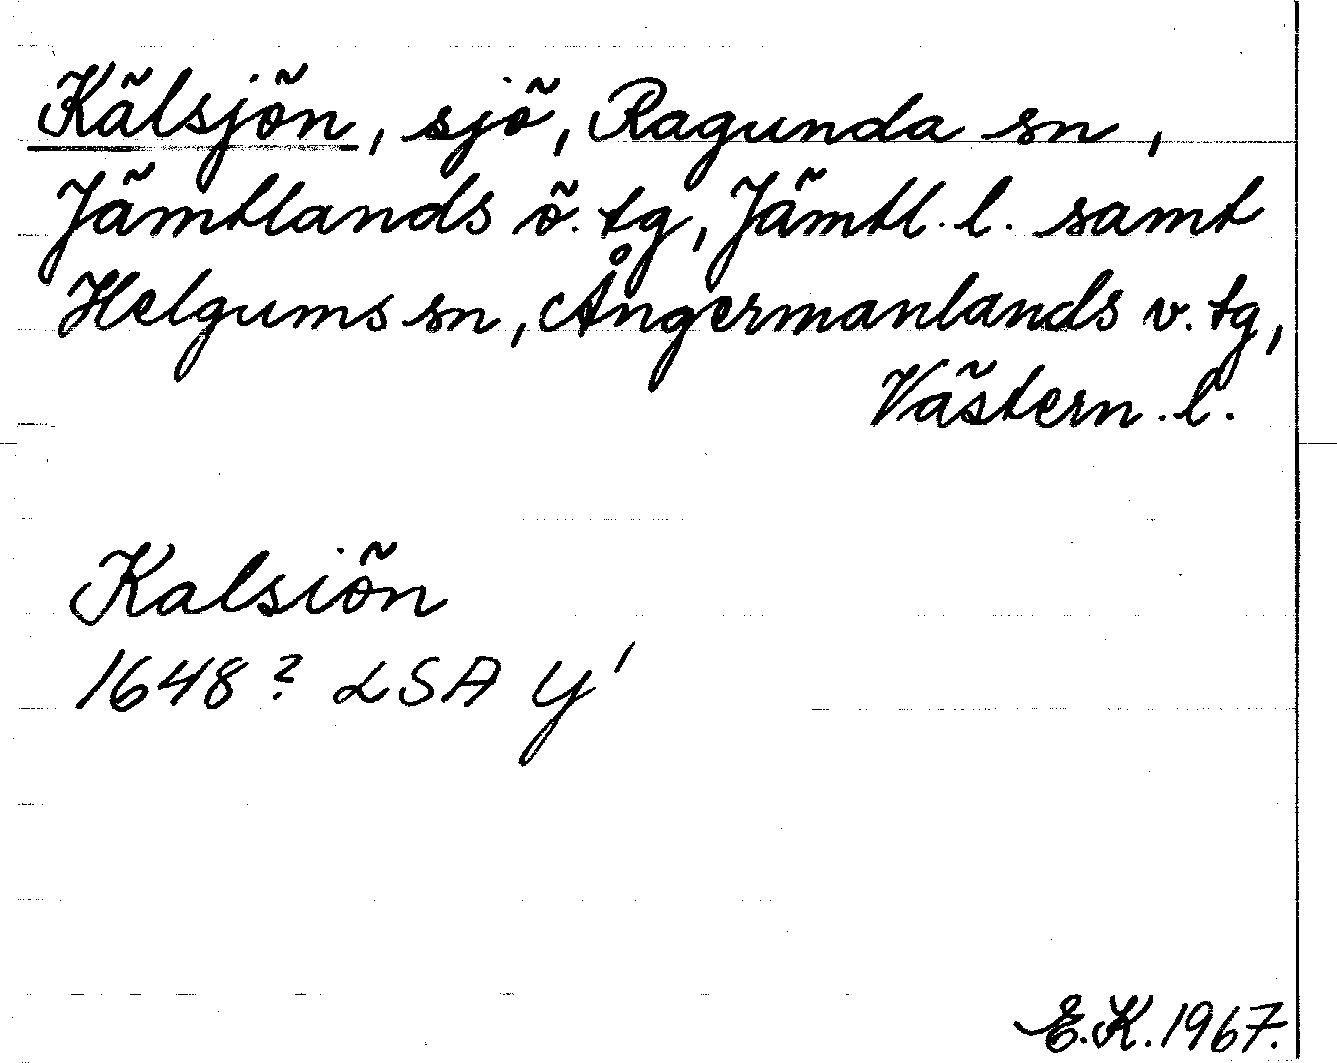 Kälsjön, sjö, Ragunda sn,
Jämtlands ö. tg, Jämtl. l. samt
Helgums sn, Ångermanlands v. tg,
Västern. l.
Kalsiön
1648? LSA Y'
E.K. 1967.